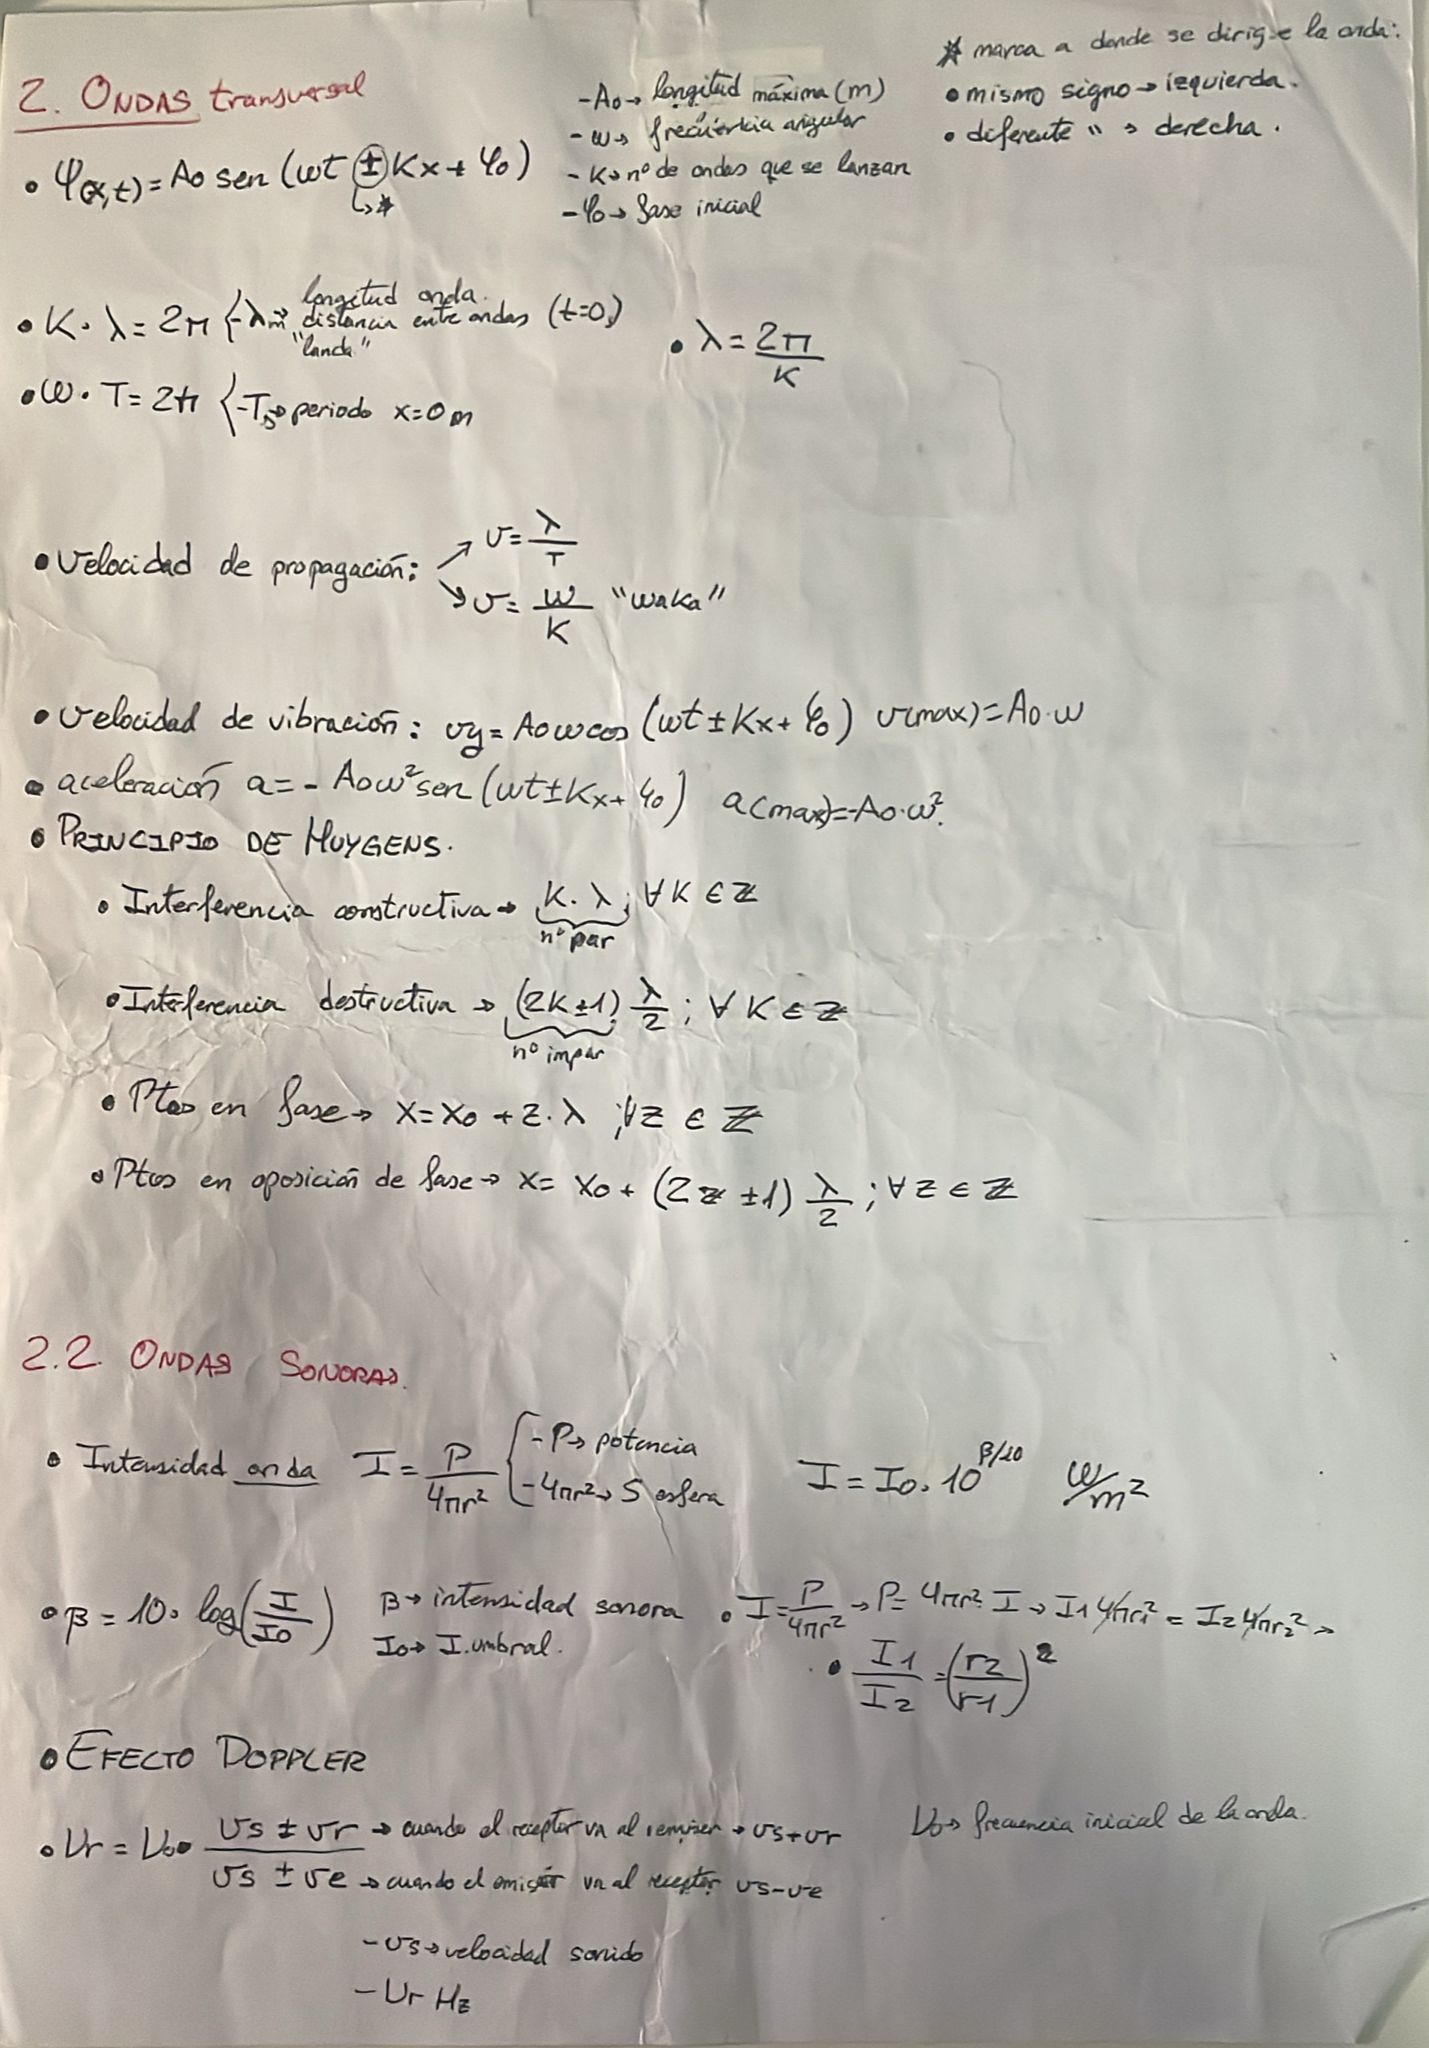 2. ONDAS transversal
• Ψ(x,t) = A0 sen (ωt ± Kx + φ0)
↳*
- A0 → longitud máxima (m)
- ω → frecuencia angular
- K → nº de ondas que se lanzan
- φ0 → fase inicial
* marca a donde se dirige la onda:
• mismo signo → izquierda.
• diferente " → derecha.
• K · λ = 2π { - λm → longitud onda.
distancia entre ondas (t=0s)
"landa"
• λ = 2π/K
• ω · T = 2π { - Ts → periodo x=0m
• Velocidad de propagación:
↗ v = λ/T
↘ v = ω/K "waka"
• Velocidad de vibración: vy = A0 ω cos (ωt ± Kx + φ0) v(max) = A0·ω
• aceleración a = - A0ω² sen (ωt ± Kx + φ0) a(max) = -A0·ω².
• PRINCIPIO DE HUYGENS.
• Interferencia constructiva → K · λ ; ∀ K ∈ ℤ
nº par
• Interferencia destructiva → (2K ± 1) λ/2 ; ∀ K ∈ ℤ
nº impar
• Ptos en fase → x = x0 + z · λ ; ∀ z ∈ ℤ
• Ptos en oposición de fase → x = x0 + (2z ± 1) λ/2 ; ∀ z ∈ ℤ
2.2. ONDAS SONORAS.
• Intensidad onda I = P/4πr² { - P → potencia
- 4πr² → S esfera
I = I0 · 10^β/10 W/m²
• β = 10 · log(I/I0)
β → intensidad sonora
I0 → I. umbral.
• I = P/4πr² → P = 4πr² I → I1 4πr1² = I2 4πr2² →
• I1/I2 = (r2/r1)²
• EFECTO DOPPLER
• νr = ν0 · (vs ± vr)/(vs ± ve)
→ cuando el receptor va al → vs + vr
→ cuando el emisor va al receptor vs - ve
ν0 → frecuencia inicial de la onda.
- vs → velocidad sonido
- νr Hz